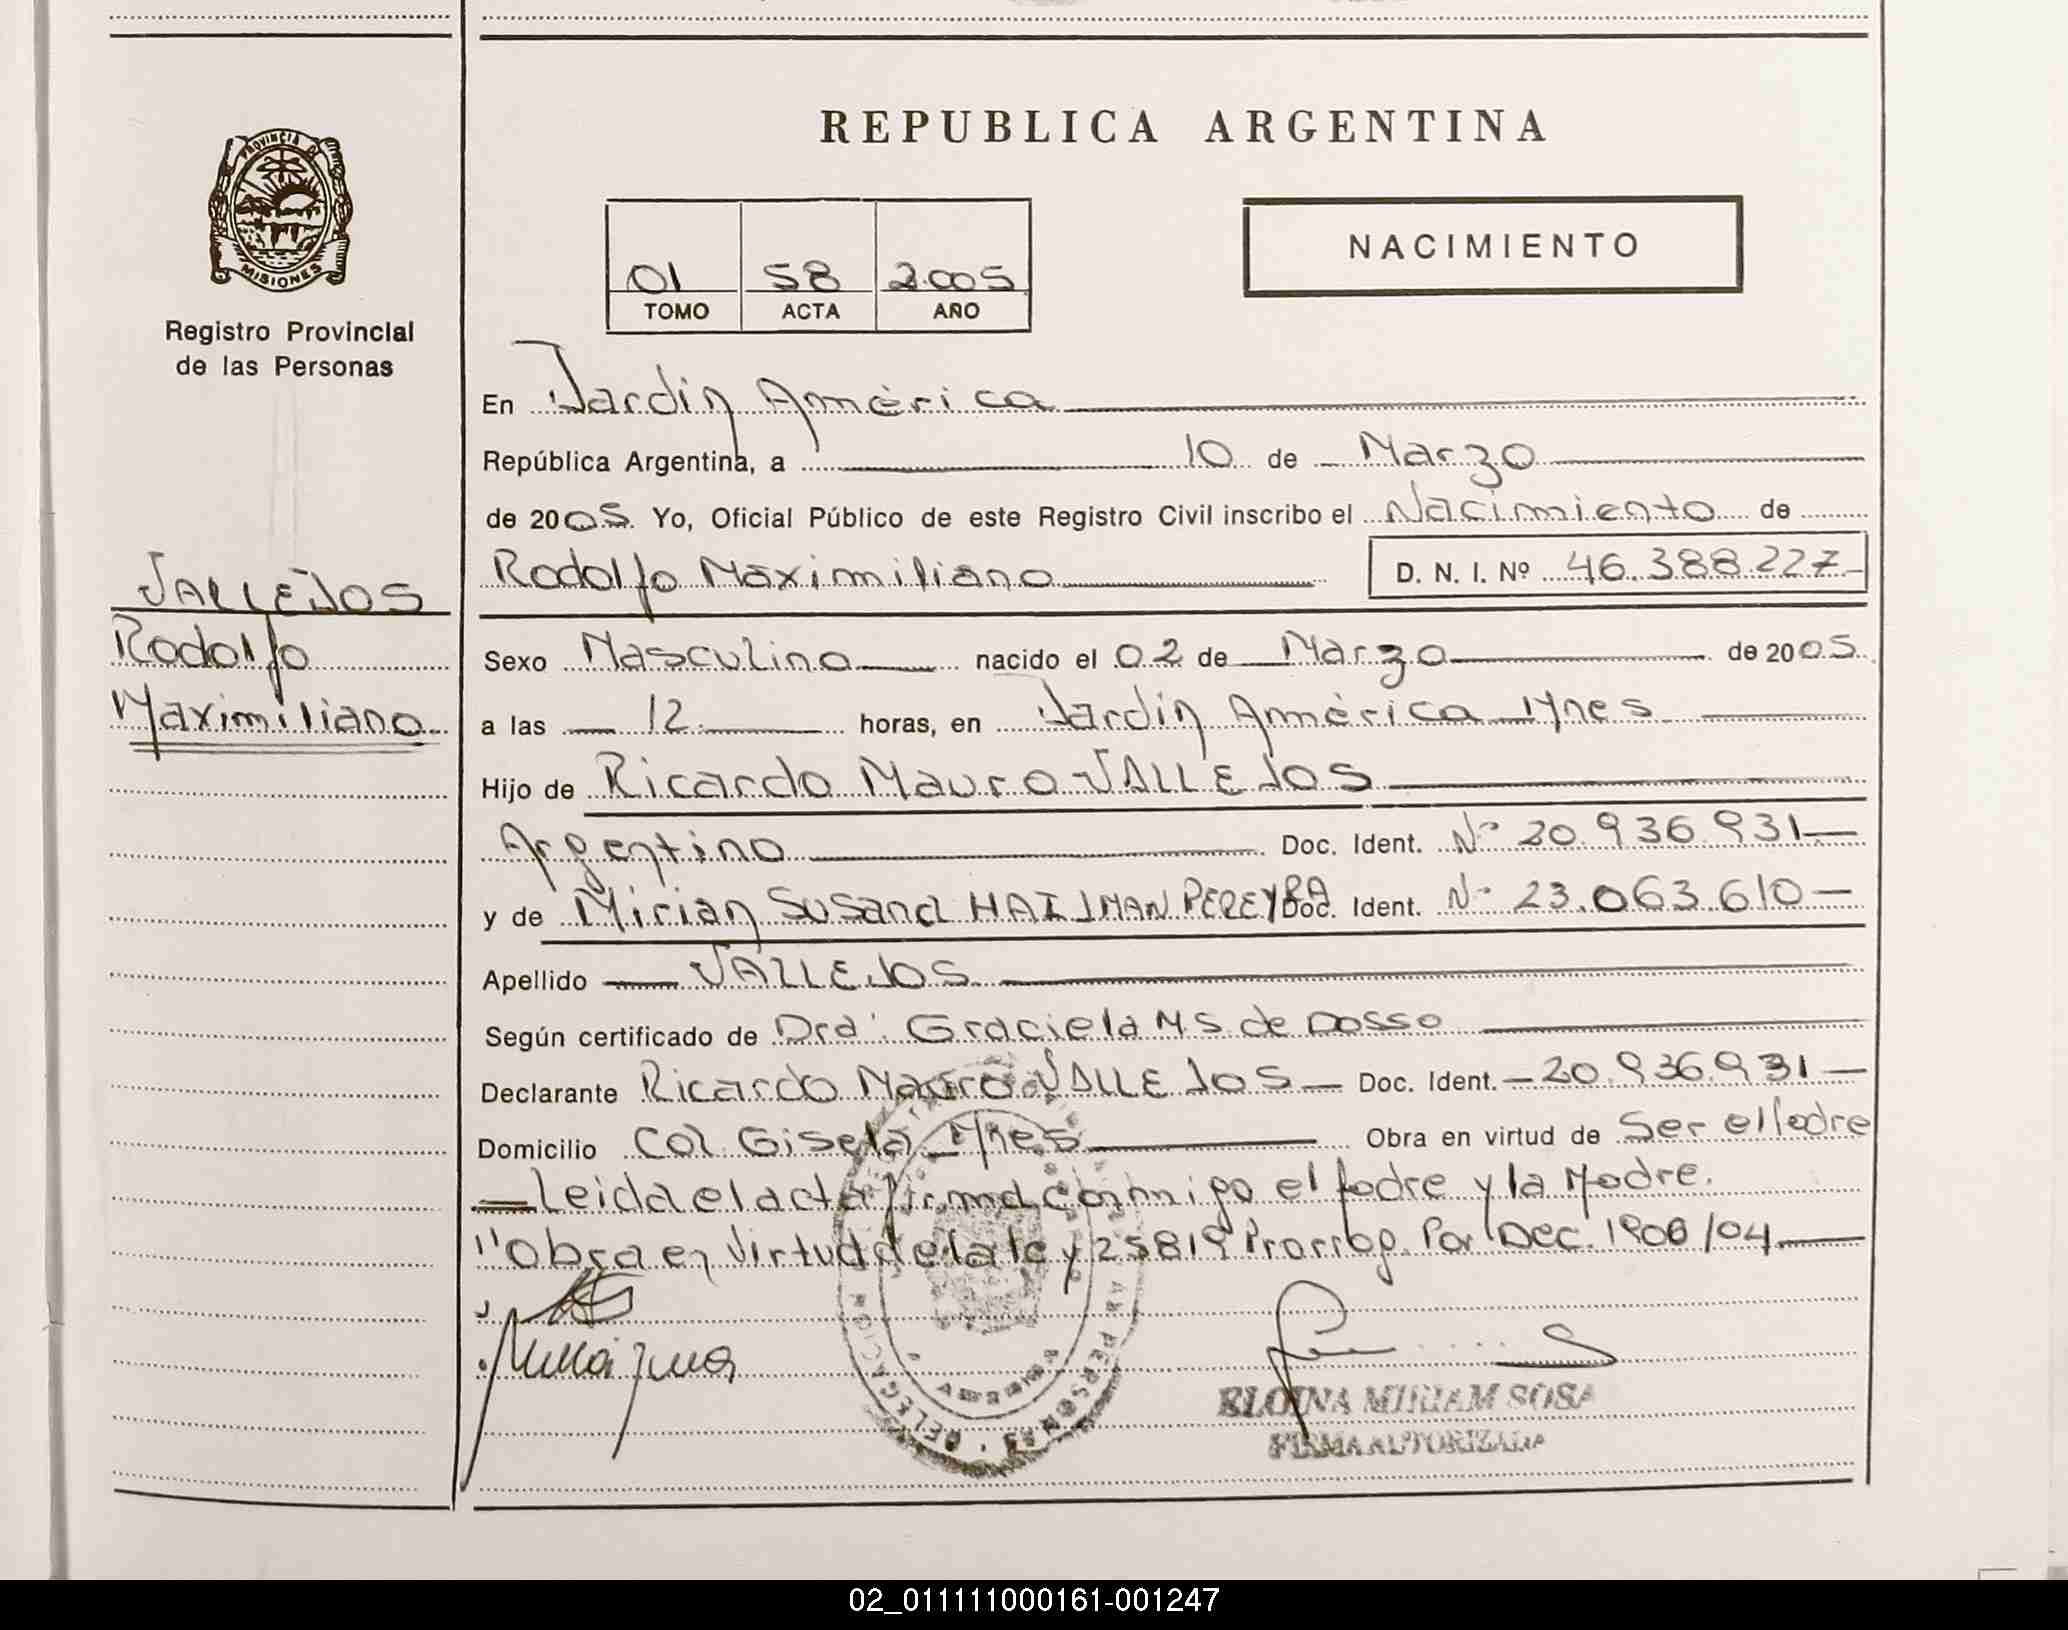 REPUBLICA ARGENTINA
PROVINCIA DE
MISIONES
Registro Provincial
de las Personas
NACIMIENTO
01 58 2.005
TOMO ACTA AÑO
En Jardín América
República Argentina, a 10 de Marzo
de 2005. Yo, Oficial Público de este Registro Civil inscribo el Nacimiento de
Rodolfo Maximiliano D. N. I. Nº 46.388.227
VALLEJOS
Rodolfo
Maximiliano
Sexo Masculino nacido el 02 de Marzo de 2005
a las 12 horas, en Jardín América Mnes
Hijo de Ricardo Mauro VALLEJOS
Argentino Doc. Ident. Nº 20.936.931
y de Mirian Susana HAIJMAN PEREYRA Doc. Ident. Nº 23.063.610
Apellido VALLEJOS
Según certificado de Dra. Graciela M.S. de Dosso
Declarante Ricardo Mauro VALLEJOS Doc. Ident. 20.936.931
Domicilio Col. Gisela Mnes Obra en virtud de Ser el Padre
Leida el acta firma conmigo el Padre y la Madre.
"Obra en Virtud de la ley 25819 Prorrog. Por Dec. 1908/04
DELEGACION
ELOINA MIRIAM SOSA
FIRMA AUTORIZADA
02_011111000161-001247